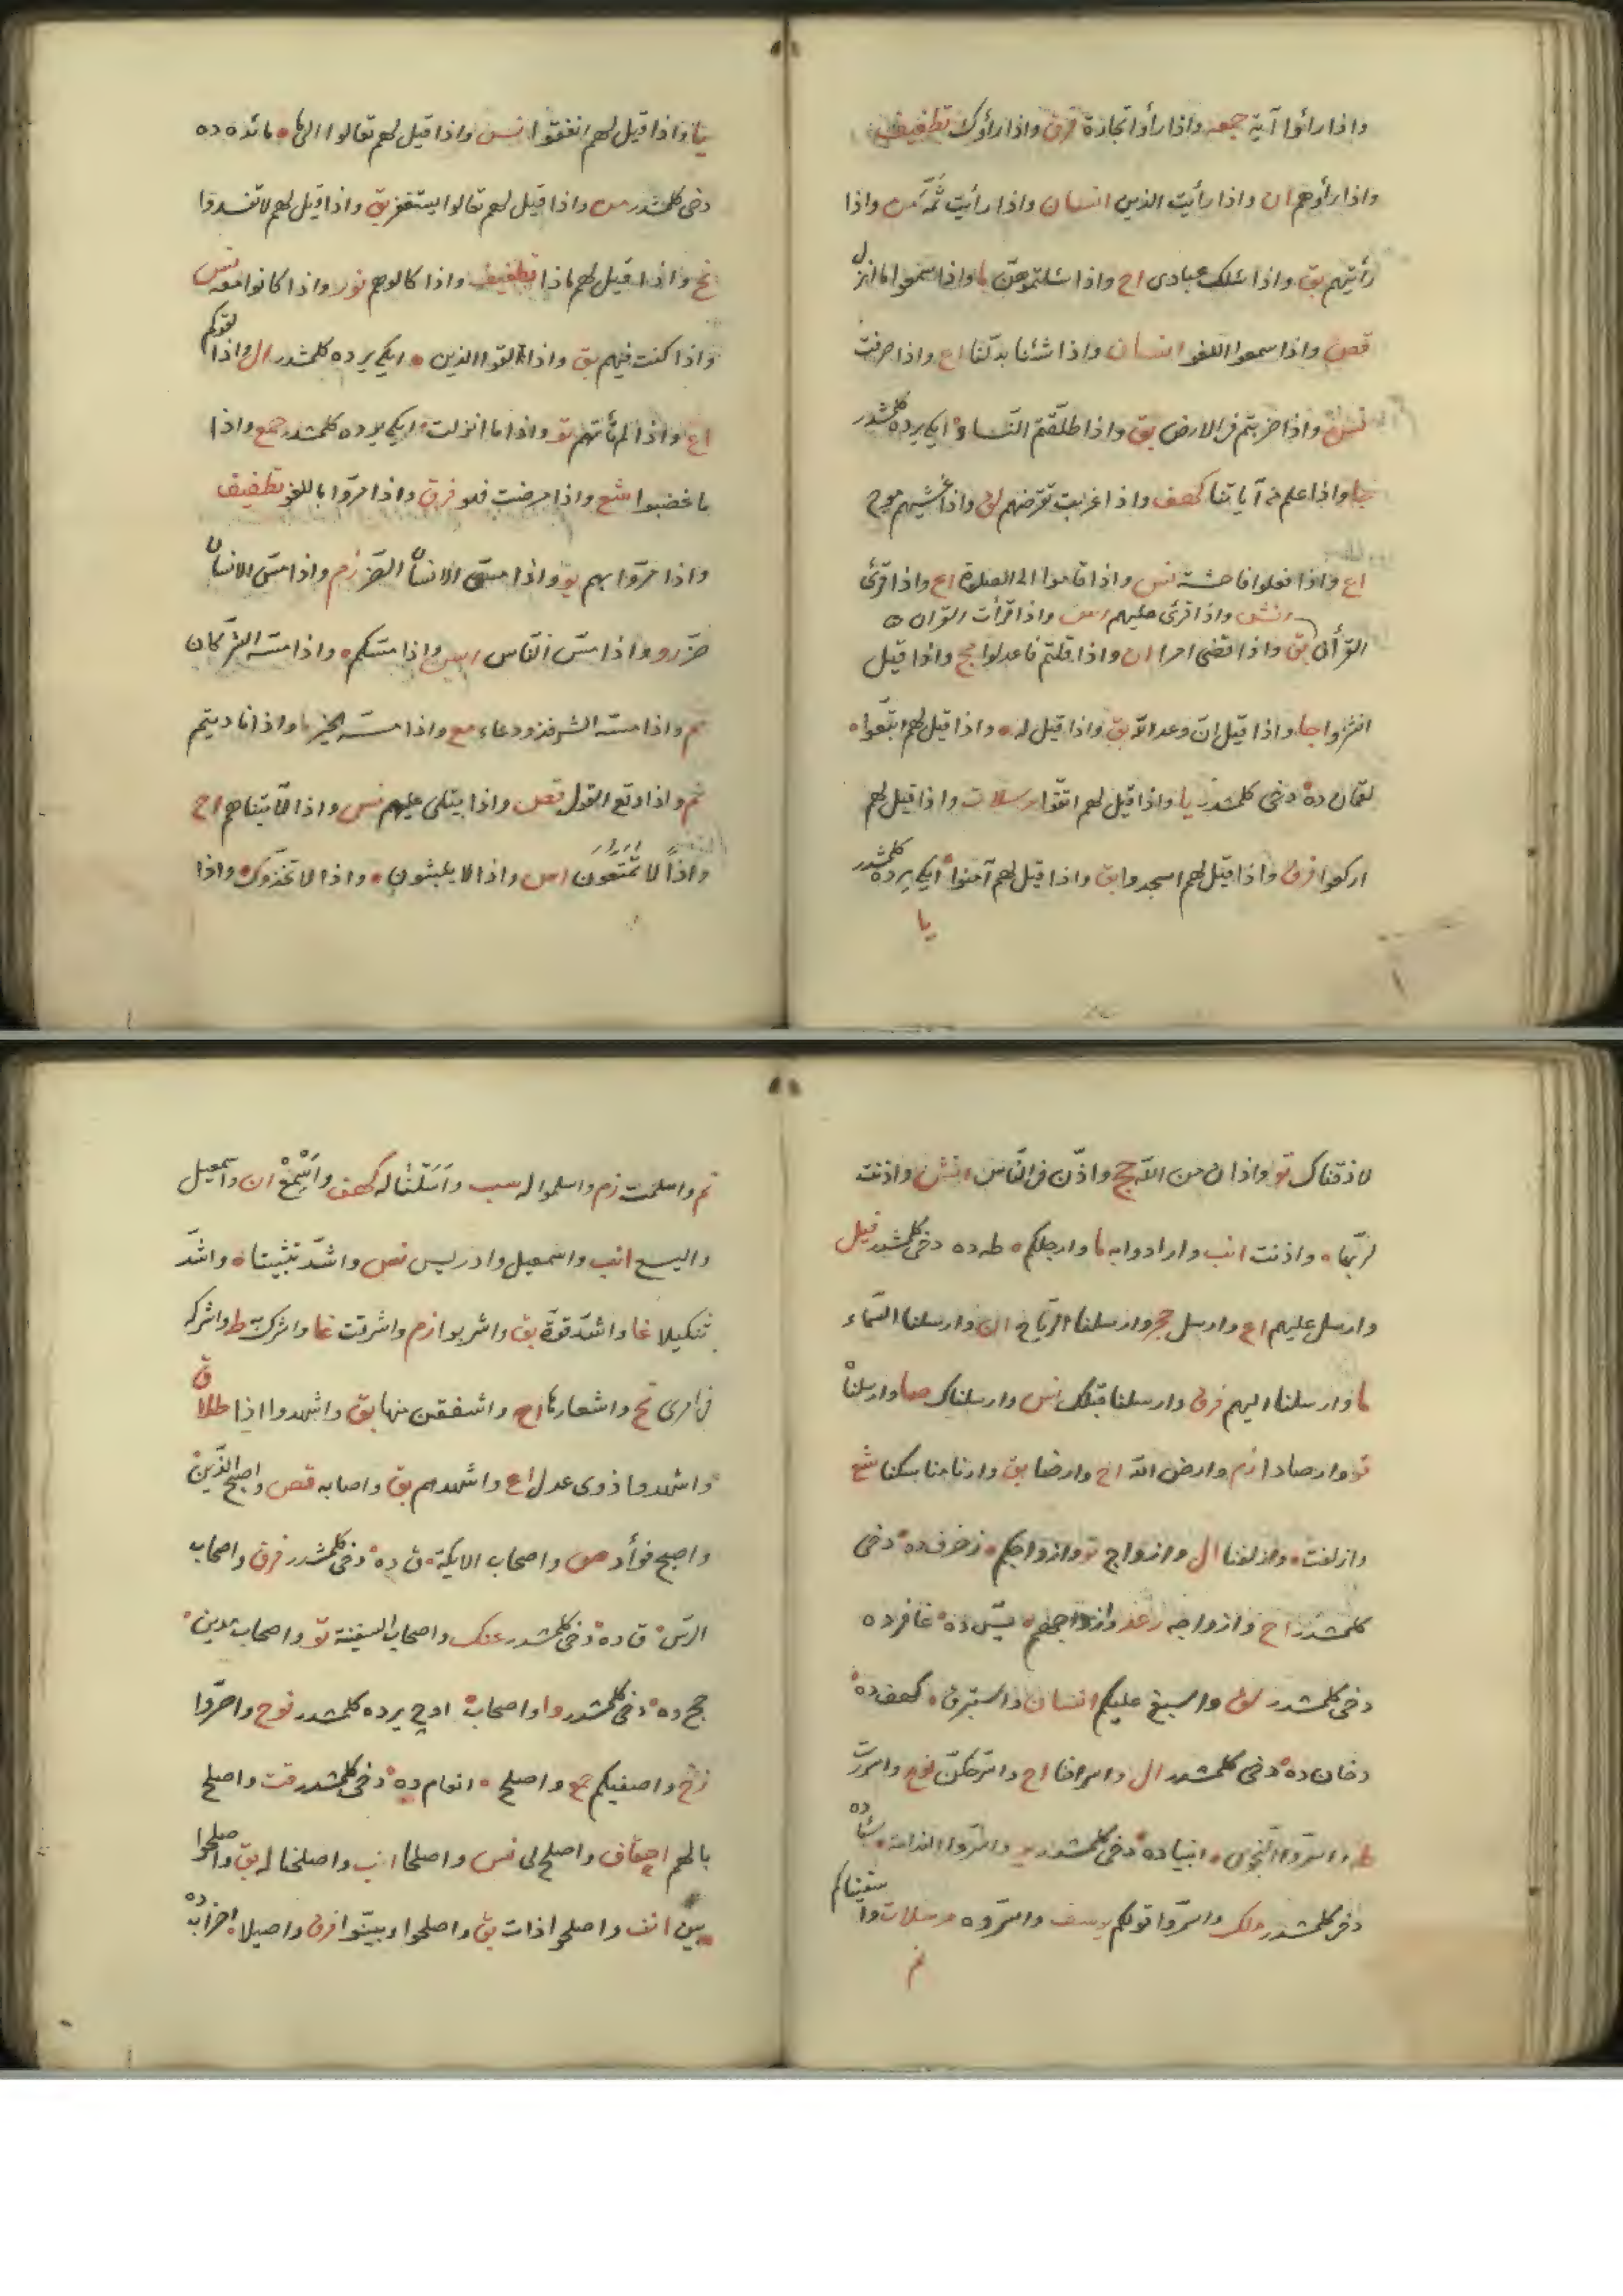 واذا رأوا آية جمعه واذا رأوا تجارة فرق واذا رأوك تطفيف
واذا رأوهم ان واذا رأيت الذين انسان واذا رأيت ثَمَّ من واذا
رأيتهم بق واذا سئلك عبادى اح واذا سئلتموهن ما واذا سمعوا ما انزل
قصص واذا سمعوا اللغو انسان واذا شئنا بدلنا اع واذا صرفت
واذا ضربتم فى الارض بق واذا طلقتم النساء ايكى يرده كلمشدر
جا واذا علم من آياتنا كهف واذا غربت تقرضهم لق واذا غشيهم موج
اع واذا فعلوا فاحشة نس واذا قاموا الى الصلوة اع واذا قرئ
انش واذا قرئ عليهم واذا قرأت القرآن
القرآن بق واذا قضى امرا ان واذا قلتم فاعدلوا حج واذا قيل
انشزوا جا واذا قيل ان وعد الله بق واذا قيل له واذا قيل لهم اتبعوا
لقمان ده دخى كلمشدر يا واذا قيل لهم اتقوا مرسلات واذا قيل لهم
اركعوا فرق واذا قيل لهم اسجدوا بق واذا قيل لهم آمنوا ايكى يرده كلمشدر
يا
يا واذا قيل لهم انفقوا نس واذا قيل لهم تعالوا الى ما مائده ده
دخى كلمشدر من واذا قيل لهم تعالوا يستغفر بق واذا قيل لهم لا تفسدوا
نح واذا قيل لهم ماذا تطفيف واذا كالوهم نور واذا كانوا معه نس
واذا كنت فيهم بق واذا لقوا الذين ايكى يرده كلمشدر ال واذا لقوكم
اع واذا لم تأتهم تو واذا ما انزلت ايكى يرده كلمشدر جمع واذا
ما غضبوا شع واذا مرضت فهو فرق واذا مروا باللغو تطفيف
واذا مروا بهم يو واذا مس الانسان الضر زم واذا مس الانسان
ضر رو واذا مس الناس واذا مسكم واذا مسه الشر كان
واذا مسه الشر فذو دعاء مع واذا مسه الخير ما واذا ناديتم
نم واذا وقع القول قصص واذا يتلى عليهم نس واذا لآتيناهم اح
واذا لا تمتعون اس واذا لا يلبثون واذا لاتخذوك واذا
لاذقناك تو واذان من الله حج واذن فى الناس انش واذنت
لربها واذنت انب وارادوا به ما وارجلكم طه ده دخى كلمشدر فيل
وارسل عليهم اع وارسل حجر وارسلنا الرياح ان وارسلنا السماء
ما وارسلنا اليهم فرق وارسلنا قبلك نس وارسلناك صا وارسلناه
تو وارصادا زم وارض الله اح وارضا بق وارنا مناسكنا شع
وازلفت وازلفنا ال وازواج تو وازواجكم زخرف ده دخى
كلمشدر اح وازواجه رعد وازواجهم يس ده غافرده
دخى كلمشدر لق واسبغ عليكم انسان واستبرق كهف ده
دخان ده دخى كلمشدر ال واسرافنا اح واسرحكن نوح واسررت
طه واسروا النجوى انبياده دخى كلمشدر يو واسروا الندامة سبأ ده
دخى كلمشدر ملك واسروا قولكم يوسف واسروه مرسلات واسقيناكم
نم
نم واسلمت زم واسلموا له سب واسلنا له كهف واسمع ان واسمعيل
واليسع انب واسمعيل وادريس نص واشد تثبيتا واشد
تنكيلا غا واشد قوة بق واشربوا زم واشرقت غا واشرك به ط واشركه
فى امرى نح واشعارها اح واشفقن منها بق واشهدوا اذا طلاق
واشهدوا ذوى عدل اع واشهدهم بق واصابه قصص واصبح الذين
واصبح فؤاد ص واصحاب الايكة ق ده دخى كلمشدر فرق واصحاب
الرس ق ده دخى كلمشدر عنك واصحاب السفينة تو واصحاب مدين
حج ده دخى كلمشدر وا واصحاب اوچ يرده كلمشدر نوح واصروا
زخ واصفيكم مح واصلح انعام ده دخى كلمشدر قت واصلح
بالهم احقاف واصلح لى نس واصلحا انب واصلحنا له بق واصلحوا
بين انف واصلحوا ذات بق واصلحوا وبينوا فرق واصيلا احزاب ده